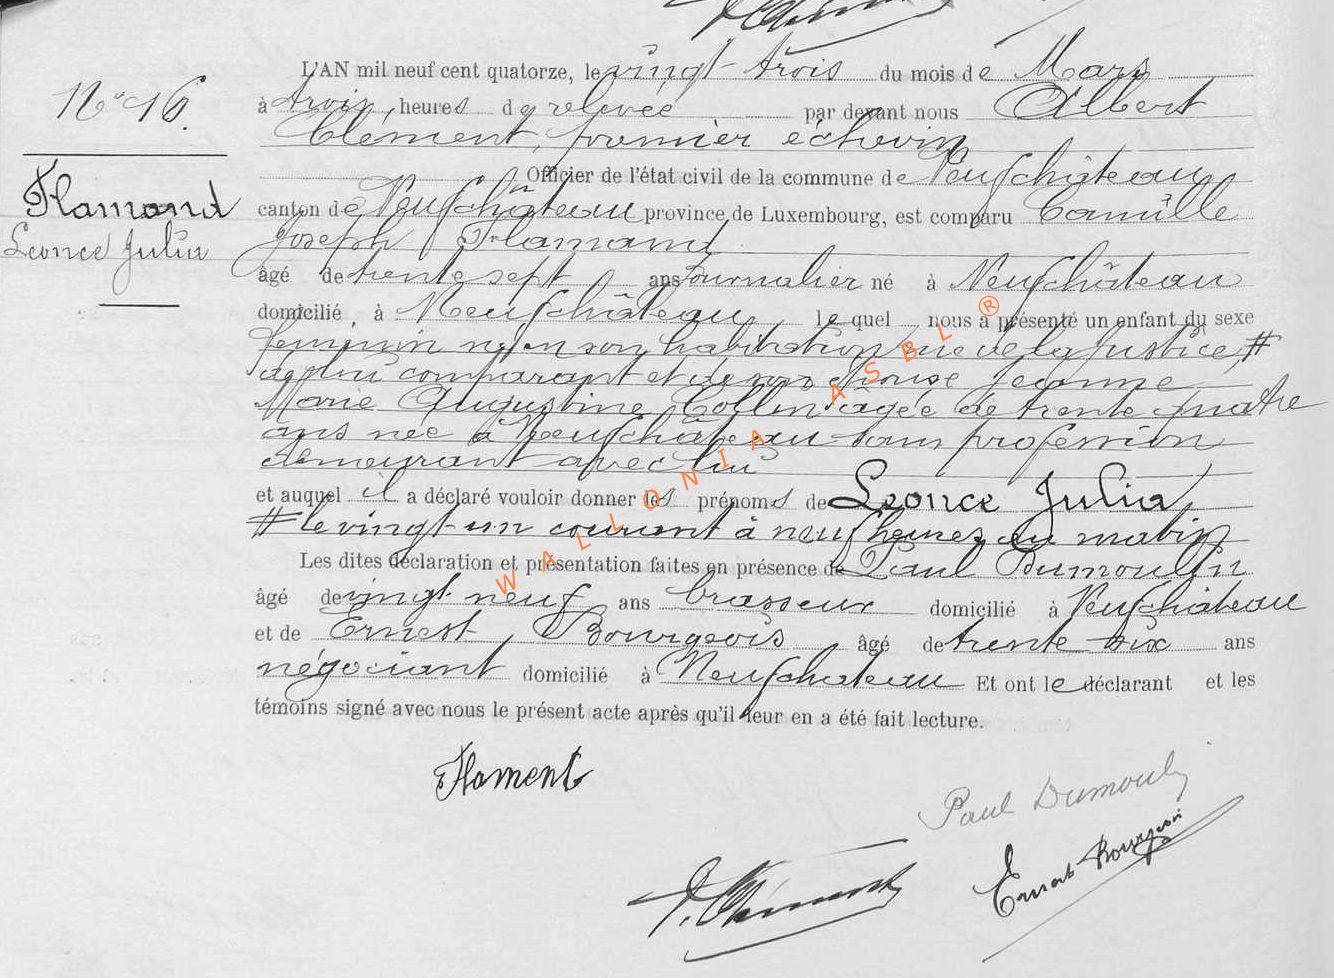 N° 16.
Flamand
Leonce Julia
L'AN mil neuf cent quatorze, le vingt-trois du mois de Mars
à trois heures de relevée par devant nous Albert
Clément, premier échevin
Officier de l'état civil de la commune de Neufchâteau
canton de Neufchâteau province de Luxembourg, est comparu Camille
Joseph Flamand
âgé de trente sept ans journalier né à Neufchâteau
domicilié à Neufchâteau lequel nous a présenté un enfant du sexe
féminin né en son habitation rue de la Justice, #
de lui comparant et de son épouse Jeanne
Marie Augustine Collin âgée de trente quatre
ans née à Neufchâteau sans profession
demeurant avec lui
et auquel il a déclaré vouloir donner les prénoms de Leonce Julia,
# le vingt-un courant à neuf heures du matin
Les dites déclaration et présentation faites en présence de Paul Dumoulin
âgé de vingt-neuf ans brasseur domicilié à Neufchâteau
et de Ernest Bourgeois âgé de trente six ans
négociant domicilié à Neufchateau Et ont le déclarant et les
témoins signé avec nous le présent acte après qu'il leur en a été fait lecture.
WALLONIA ASBL ®
Flament
Paul Dumoulin
Ernest Bourgeois
Clément